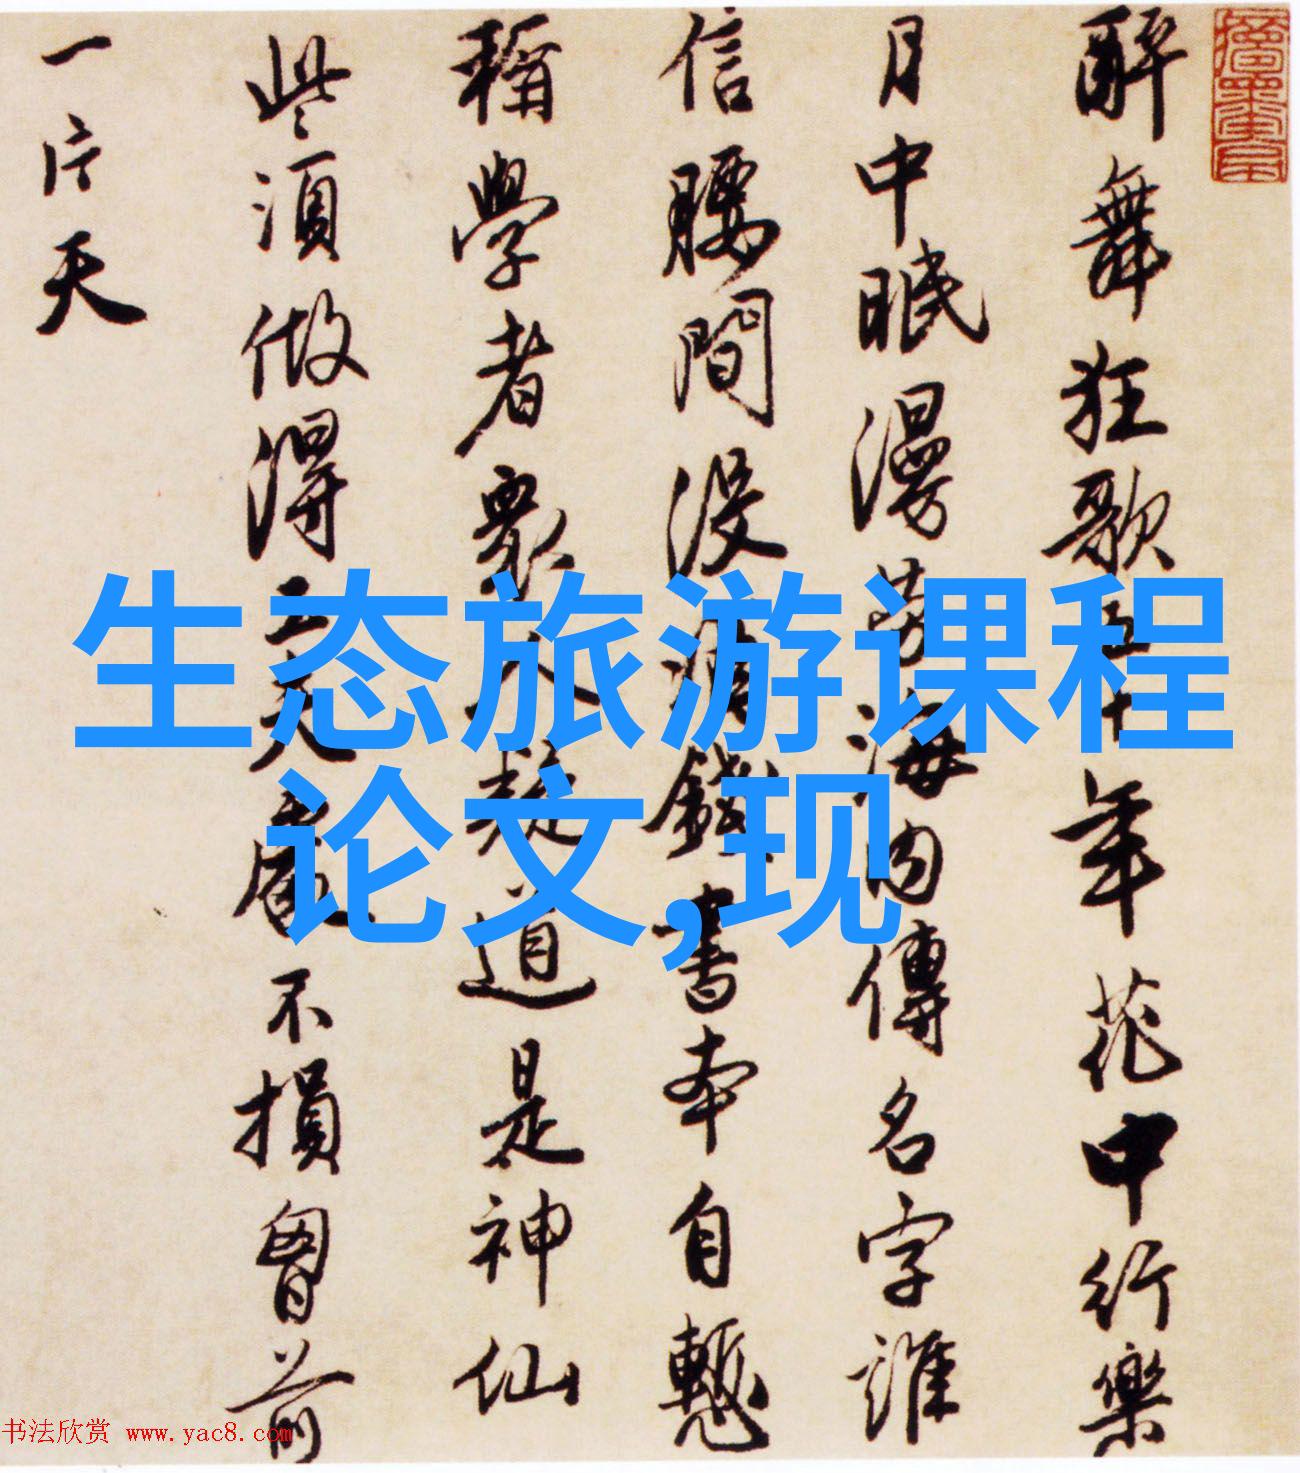 醉舞狂歌五十年花中行樂
月中眠漫勞海內傳名字誰
信腰間沒酒錢書本自慙
稱學者衆人疑道是神仙
些須做得工夫處不損胷前
一片天
生态旅游课程
论文,现
书法欣赏 www.yac8.com